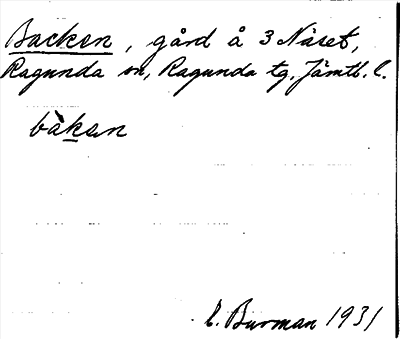 Backen, gård å 3 Näset,
Ragunda sn, Ragunda tg. Jämtl. l.
bàkan
C. Burman 1931